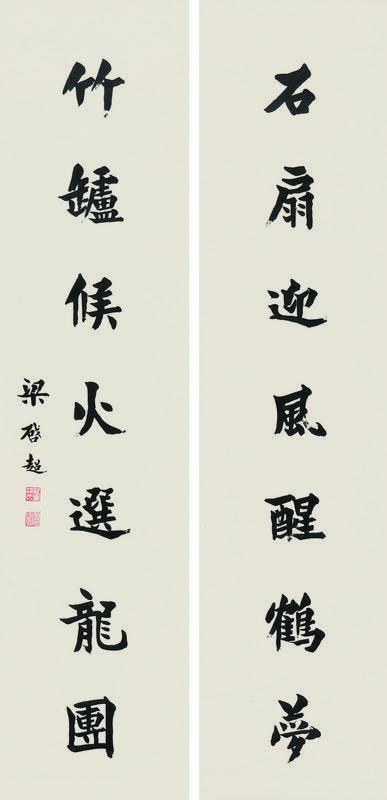 石扇迎風醒鶴夢
竹罏候火選龍團
梁啓超